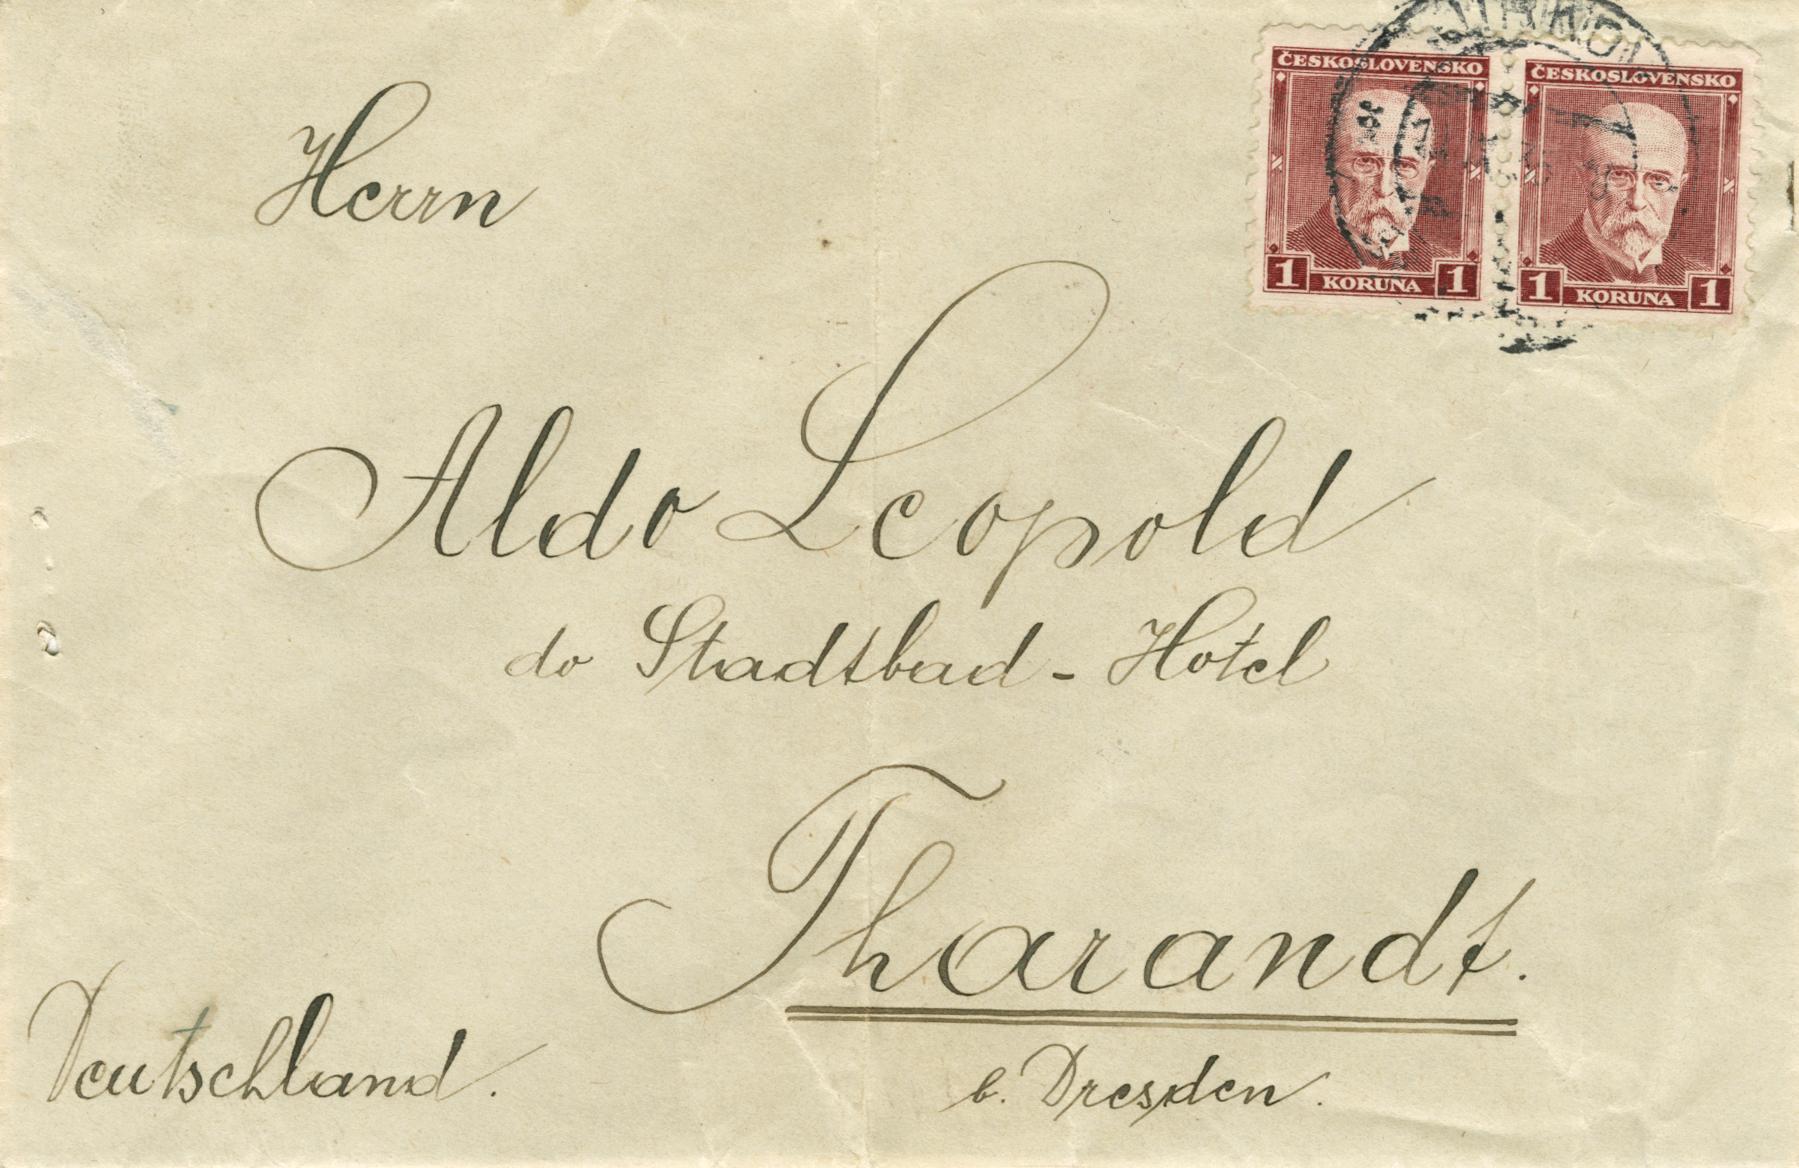 ČESKOSLOVENSKO
1 KORUNA 1
ČESKOSLOVENSKO
1 KORUNA 1
Herrn
Aldo Leopold
do Stadtbad - Hotel
Tharandt.
b. Dresden.
Deutschland.